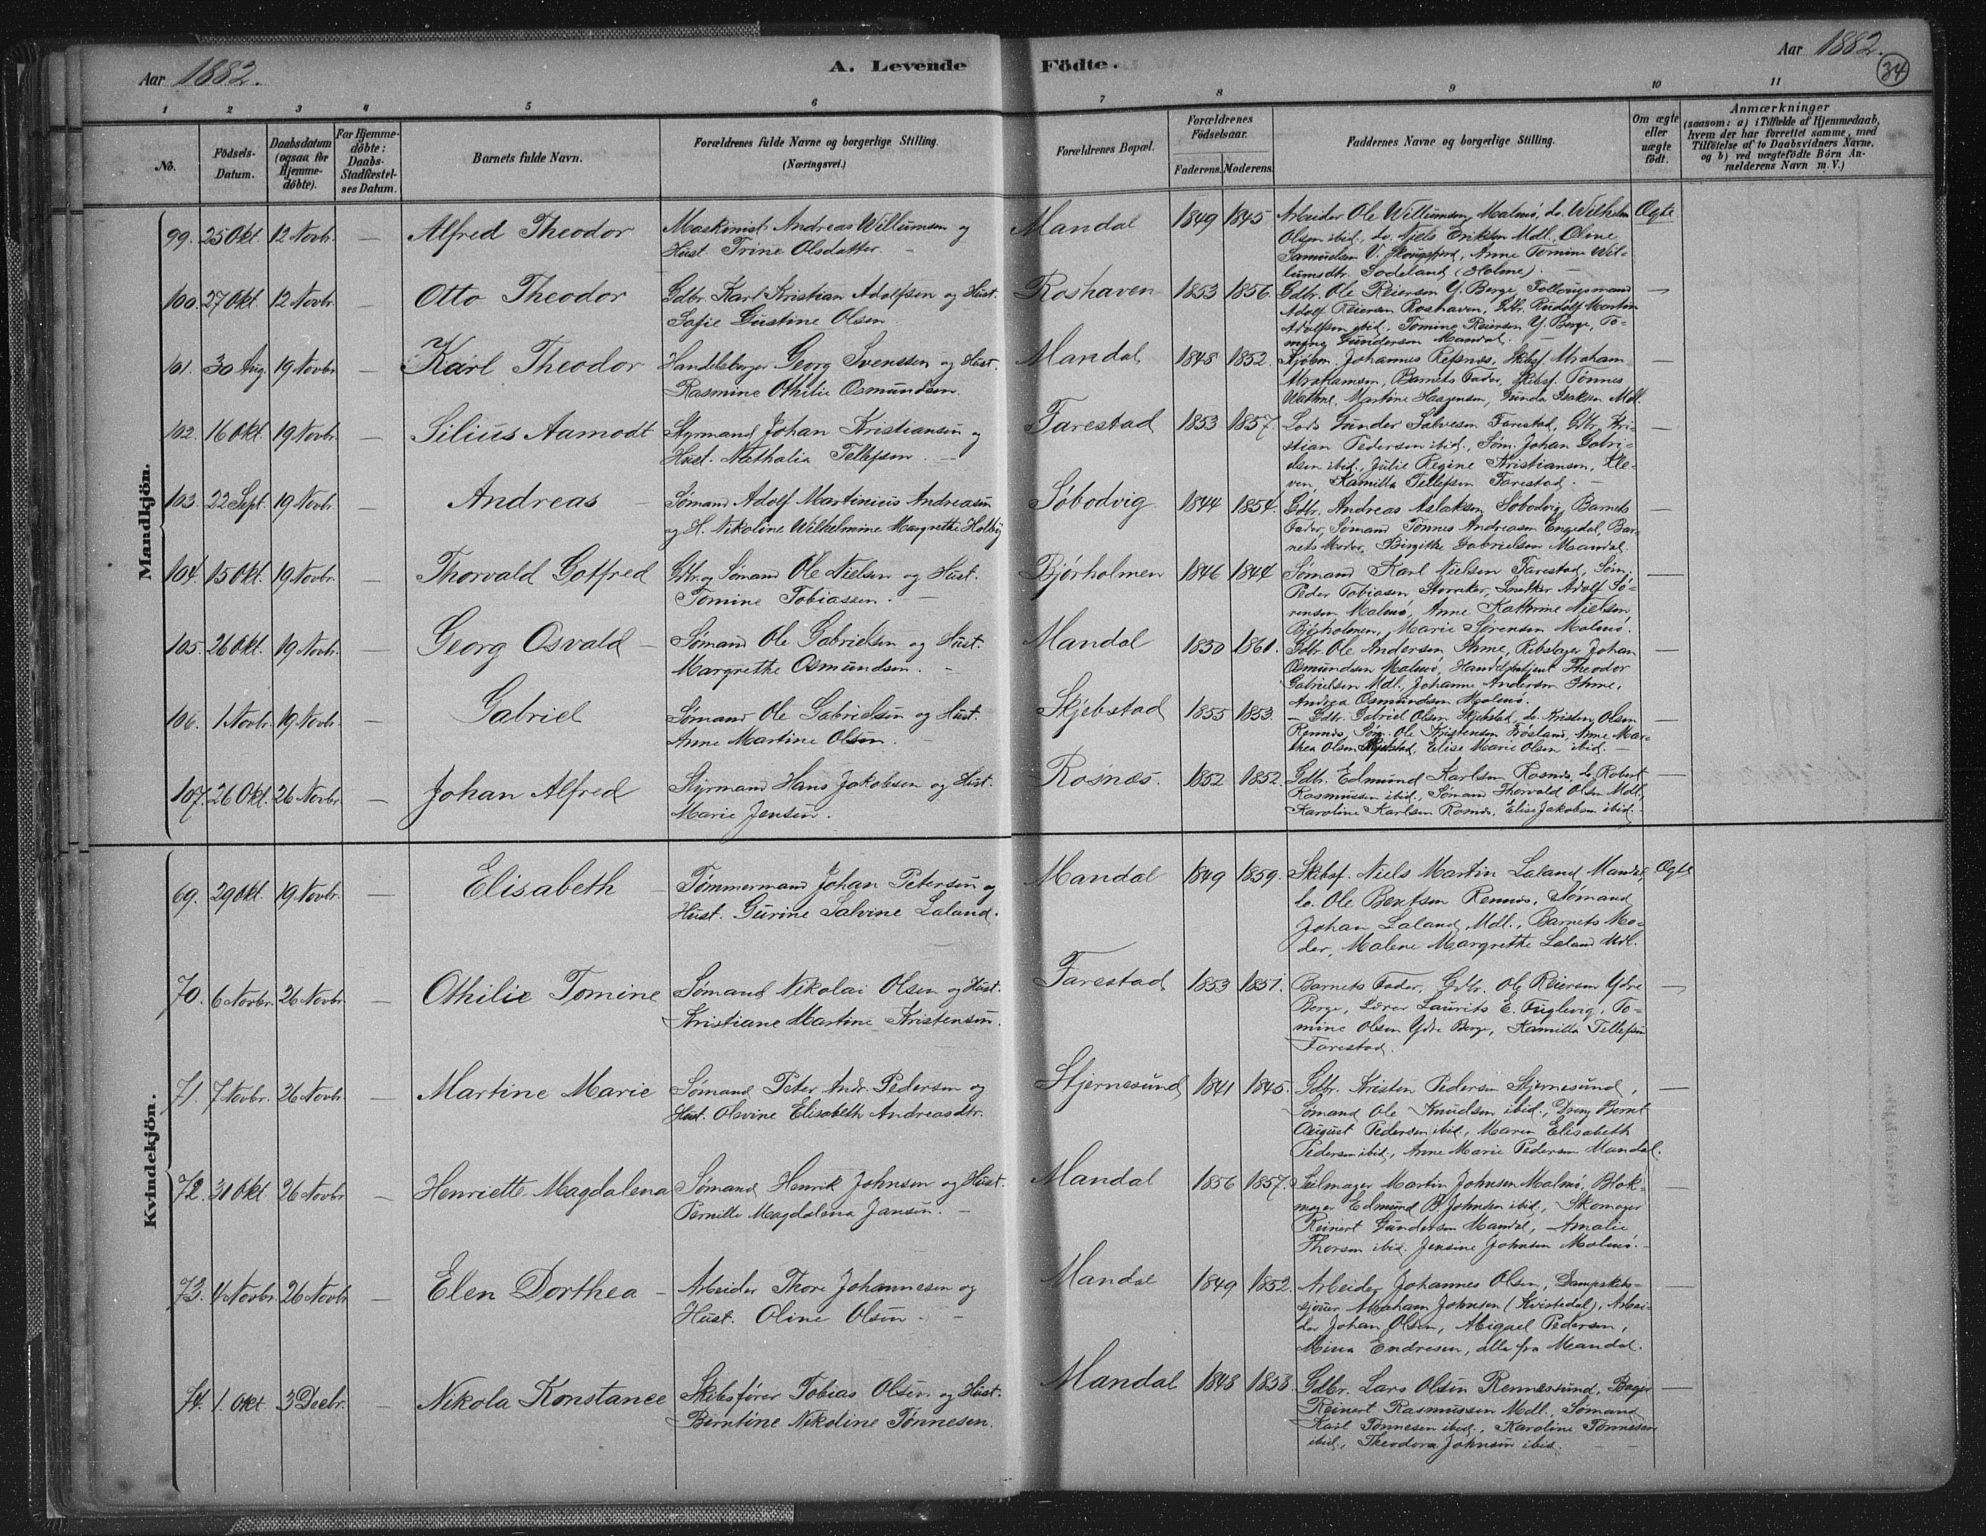 Aar 1882.
A. Levende Födte.
Aar 1882.
34
1 2 3 4 5 6 7 8 9 10 11
No.
Födsels-
Datum.
Daabsdatum
(ogsaa för
Hjemme-
döbte).
For Hjemme-
döbte:
Daabs-
Stadfæstel-
ses Datum.
Barnets fulde Navn.
Forældrenes fulde Navne og borgerlige Stilling.
(Næringsvei.)
Forældrenes Bopæl.
Forældrenes
Födselsaar.
Faderens. Moderens.
Faddernes Navne og borgerlige Stilling.
Om ægte
eller
uægte
født.
Anmærkninger
(saasom: a) i Tilfælde af Hjemmedaab,
hvem der har forrettet samme, med
Tilföielse af to Daabsvidners Navne,
og b) ved uægtefödte Börn An-
melderens Navn m. V.)
Mandkjön.
99. 25 Okt. 12 Novbr. — Alfred Theodor Maskinist Andreas Willumsen og Mandal 1849 1845. Arbeider Ole Willumsen Malmö, do. Wilhelm Ægte
Hust. Trine Olsdatter. Olsen ibid., do. Niels Eriksen Mdl., Oline
Samuelsen V. Skougsfjord, Anne Tomine Wil-
lumsdtr. Sodeland (Holme). —
100. 27 Okt. 12 Novbr. — Otto Theodor Gdbr. Karl Kristian Adolfsen og Hust. Roshaven 1853 1856. Gdbr. Ole Reiersen Y. Berge, Tollungsmand —
Sofie Gustine Olsen Adolf Reiersen Roshaven, Gdbr. Rudolf Martin
Adolfsen ibid., Tomine Reiersen Y. Berge, To-
mine Gundersen Mandal. —
101. 30 Aug. 19 Novbr. — Karl Theodor Handelsborger Georg Svenssen og Hust. Mandal 1848 1852. Kjøbm. Johannes Refsnæs, Skibsf. Abraham —
Rasmine Othilie Osmundsen. Abrahamsen, Barnets Fader, Skibsf. Tønnes
Wathne, Martine Jørgensen, Gunda Isaksen Mdl.
102. 16 Okt. 19 Novbr. — Silius Aamodt Styrmand Johan Kristiansen og Farestad 1853 1857. Lods Gunder Salvesen Farestad, Gdbr. Kri- —
Hust. Nathalia Tellefsen. — stian Pedersen ibid., Søm. Johan Gabri-
elsen ibid., Julie Regine Kristiansen, Kle-
ven, Kamilla Tellefsen Farestad. —
103. 22 Sept. 19 Novbr. — Andreas Sømand Adolf Martinius Andreasen Søbodvig 1844 1854. Gdbr. Andreas Aslaksen Søbodvig, Barnets —
og H. Nikoline Wilhelmine Margrethe Holby Fader, Sømand Tønnes Andreasen Engedal, Bar-
nets Moder, Birgitte Gabrielsen Mandal.
104. 15 Okt. 19 Novbr. — Thorvald Gotfred Gdbr. og Sømand Ole Nielsen og Hust. Bjørholmen 1846 1844 Sømand Karl Nielsen Farestad, Søm. —
Tomine Tobiassen. — Peder Tobiasen Storaker, Snedker Adolf Sø-
rensen Malmö, Anne Kathrine Nielsen
Bjørholmen, Marie Sørensen Malmö.
105. 26 Okt. 19 Novbr. — Georg Osvald — Sømand Ole Gabrielsen og Hust. Mandal 1850 1861. Gdbr. Ole Andersen Ihme, Rebslager Johan —
Margrethe Osmundsen. — Osmundsen Malmö, Handelsbetjent Theodor
Gabrielsen Mdl. Johanne Andersen Ihme,
Andrea Osmundsen Malmö.
106. 1 Novbr. 19 Novbr. — Gabriel Sømand Ole Gabrielsen og Hust. Skjebstad 1855 1853. — Gdbr. Gabriel Olsen Skjebstad, do. Kristen Olsen —
Anne Martine Olsen. — Rennes, Søm. Ole Kristensen Frøsland, Anne Mar-
thea Olsen Skjebstad, Elise Marie Olsen ibid. —
107. 26 Okt. 26 Novbr. — Johan Alfred Styrmand Hans Jakobsen og Hust. Rosnæs. 1852 1852. Gdbr. Edmund Karlsen Rosnæs, do. Robert —
Marie Jensen. Rasmussen ibid., Sømand Thorvald Olsen Mdl.,
Karoline Karlsen Rosnæs, Elise Jakobsen ibid. —
Kvindekjön.
69. 29 Okt. 19 Novbr. — Elisabeth — Tømmermand Johan Petersen og Mandal 1849 1859. Skibsf. Niels Martin Laland Mandal, Ægte
Hust. Gurine Salvine Laland. do. Ole Bentsen Rennes, Sømand
Johan Laland Mdl., Barnets Mo-
der, Malene Margrethe Laland Mdl.
70. 6 Novbr. 26 Novbr. — Othilie Tomine Sømand Nikolai Olsen og Hust. Farestad 1853 1851. Barnets Fader, Gdbr. Ole Reiersen Ydre —
Kristiane Martine Kristensen. Berge, Lærer Laurits E. Fuglevig, To-
mine Olsen Ydre Berge, Kamilla Tellefsen
Farestad.
71. 7 Novbr. 26 Novbr. — Martine Marie Sømand Peter Andr. Pedersen og Skjernesund 1841 1845. Gdbr. Kristen Pedersen Skjernesund, —
Hust. Olevine Elisabeth Andreasdtr. Sømand Ole Knudsen ibid., Dreng Bernt
August Pedersen ibid., Maren Elisabeth
Pedersen ibid., Anne Marie Pedersen Mandal.
72. 31 Okt. 26 Novbr. — Henriette Magdalena Sømand Henrik Johnsen og Hust. Mandal 1856 1857. Seilmager Martin Johnsen Malmö, Blok- —
Pernille Magdalena Jansen. — mager Edmund B. Johnsen ibid., Skomager
Reinert Gundersen Mandal, Amalie
Thorsen ibid. Jensine Johnsen Malmö. —
73. 4 Novbr. 26 Novbr. — Elen Dorthea — Arbeider Thore Johannesen og Mandal 1849 1852. Arbeider Johannes Olsen, Dampskibs- —
Hust. Oline Olsen. — Abraham Johnsen (Kvistedal), Arbei-
der Johan Olsen, Abigael Pedersen,
Mina Endresen, alle fra Mandal.
74. 1. Okt. 3 Decbr. — Nikola Konstance Skibsfører Tobias Olsen og Hust. Mandal 1848 1853. Gdbr. Lars Olsen Rennesund, Bager —
Berntine Nikoline Tønnesen. Reinert Rasmussen Mdl., Sømand
Karl Tønnesen ibid., Karoline Tønnesen
ibid., Theodora Johnsen ibid. —